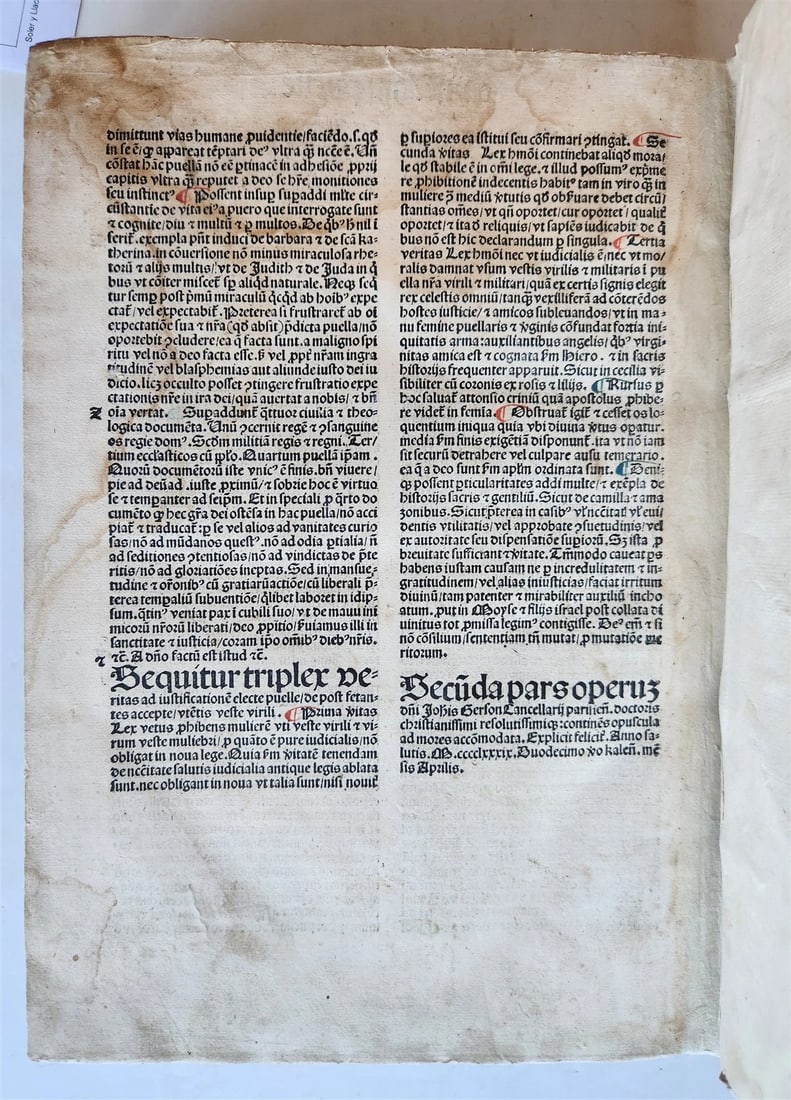 Soler y Llac
dimittunt vias humane ꝓuidentie/faciẽdo.s.qđ
in se ẽ/ꝙ appareat tẽptari deꝰ vltra ꝙ̃ necẽ ẽ. Uñ
cõstat hãc puellã nõ eẽ ꝑtinacẽ in adhesiõe ꝓprij
capitis vltra ꝙ̃ reputet a deo se hr̃e monitiones
seu instinctꝰ ¶ Possent insuꝑ suꝑaddi ml̃te cir⸗
cũstantie de vita eiꝰa puero que interrogate sunt
⁊ cognite/diu ⁊ multũ ⁊ ꝑ multos. De qb̾ hͥ nil ĩ
exempla pñt induci de barbara ⁊ de scã ka⸗
therina.in cõuersione nõ minus miraculosa rhe⸗
torũ ⁊ alijs multis/vt de Judith ⁊ de Juda in q̃
bus vt cõiter miscet̃ sꝑ aliqđ naturale.
tur semꝑ post pͥmũ miraculũ qͥcqđ ab hoib̾ expe
ctat̃/vel expectabit̃. Preterea si frustraret̃ ab oĩ
expectatiõe sua ⁊ nr̃a (qđ absit) p̃dicta puella/nõ
oportebit ꝯcludere/ea q̃ facta sunt.a maligno spi
ritu vel nõ a deo facta esse. vel ꝓpt̃ nr̃am ingra
titudinẽ vel blasphemias aut aliunde iusto dei iu
dicio.licꝫ occulto posset ꝯtingere frustratio expe
ctationis nr̃e in ira dei/quã auertat a nobis/⁊ bñ
⁊ oĩa vertat. Suꝑaddunt̃ q̃ttuor ciuilia ⁊ theo⸗
logica documẽta. Unũ ꝯcernit regẽ ⁊ ꝯsanguine
os regie domꝰ. Scđm militiã regis ⁊ regni. Ter/
tium eccl̃asticos cũ pp̃lo. Quartum puellã ip̃am.
Quorũ documẽtorũ iste vnicꝰ ẽ finis.bñ viuere/
pie ad deũ ad .iuste ꝓximũ/⁊ sobrie hoc ẽ virtuo
se ⁊ temꝑanter ad seip̃m. Et in speciali ꝓ q̃rto do
cumẽto ꝙ hec gr̃a dei oſtẽsa in hac puella/nõ acci
piat̃ ⁊ traducat̃:ꝑ se vel alios ad vanitates curio
sas/nõ ad mũdanos questꝰ.nõ ad odia ꝑtialia/ñ
ad seditiones ꝯtentiosas/nõ ad vindictas de p̃te
ritis/nõ ad gloriatiões ineptas. Sed in mansue⸗
tudine ⁊ or̃onib̾ cũ gratiarũ actiõe/cũ liberali p̃⸗
terea temꝑaliũ subuentiõe/q̃libet laboret in idip⸗
sum.qͥtinꝰ veniat pax ĩ cubili suo/vt de manu ini
micorũ nr̃orũ liberati/deo ꝓpitio/ẜuiamus illi in
sanctitate ⁊ iusticia/coram ip̃o omĩb̾ dieb̾ nr̃is.
⁊ ⁊c̃. A dño factũ est istud ⁊c̃.
Sequitur triplex ve⸗
ritas ad iustificationẽ electe puelle/de post fetan⸗
tes accepte/vtẽtis veste virili. ¶ Prima v̾itas
Lex vetus ꝓhibens mulierẽ vti veste virili ⁊ vi⸗
rum veste muliebri/ꝓ quãto ẽ pure iudicialis/nõ
obligat in noua lege. Quia ẜm v̾itatẽ tenendam
de necẽitate salutis iudicialia antique legis ablata
sunt.nec obligant in noua vt talia sunt/nisi nouit̃
ꝑ suꝑiores ea istitui seu cõfirmari ꝯtingat. ¶ Se
cunda v̾itas Lex hmõi continebat aliqđ mora/
le qđ stabile ẽ in om̃i lege.⁊ illud possumꝰ exp̃me
re ꝓhibitionẽ indecentis habitꝰ tam in viro ꝙ̃ in
muliere ꝯ̃ mediũ v̾tutis qđ obẜuare debet circũ/
stantias om̃es/vt qñ oportet/cur oportet/qualit̃
oportet/⁊ ita đ reliquis/vt sapiẽs iudicabit de q̃
bus nõ est hic declarandum ꝑ singula. ¶ Tertia
veritas Lex hmõi nec vt iudicialis ẽ/nec vt mo/
ralis damnat vsum vestis virilis ⁊ militaris ĩ pu
ella nr̃a virili ⁊ militari/quã ex certis signis elegit
rex celestis omniũ/tanꝙ̃ vexilliferã ad cõterẽdos
hostes iusticie/⁊ amicos subleuandos/vt in ma⸗
nu femine puellaris ⁊ v̾ginis cõfundat fortia ini⸗
quitatis arma:auxiliantibus angelis/qb̾ virgi⸗
nitas amica est ⁊ cognata ẜm Hiero. ⁊ in sacris
historijs frequenter apparuit. Sicut in cecilia vi⸗
sibiliter cũ coronis ex rosis ⁊ lilijs. ¶ Rursus ꝑ
hoc saluat̃ attonsio criniũ quã apostolus ꝓhibe⸗
re videt̃ in femĩa. ¶ Obstruat̃ igit̃ ⁊ cesset os lo⸗
quentium iniqua quia vbi diuina v̾tus oꝑatur.
media ẜm finis exigẽtiã disponunt̃.ita vt nõ iam
sit securũ detrahere vel culpare ausu temerario.
ea q̃ a deo sunt ẜm apl̃m ordinata sunt. ¶ Deni⸗
ꝗ possent ꝑticularitates addi multe/⁊ exẽpla de
historijs sacris ⁊ gentiliũ. Sicut de camilla ⁊ ama
zonibus. Sicut p̃terea in casib̾ vl̃ necẽitat̃ vl̃ eui/
dentis vtilitatis/vel approbate ꝯsuetudinis/vel
ex autoritate seu dispensatiõe suꝑiorũ. Sꝫ ista ꝓ
breuitate sufficiant ⁊ v̾itate. Tm̃modo caueat ꝑs
habens iustam causam ne ꝑ incredulitatem ⁊ in⸗
gratitudinem/vel alias iniusticias/faciat irritum
diuinũ/tam patenter ⁊ mirabiliter auxiliũ incho
atum.ꝓut in Moyse ⁊ filijs israel post collata di
uinitus tot ꝓmissa legimꝰ contigisse. Deꝰ em̃ ⁊ si
nõ cõsilium/sententiam tñ mutat/ꝓ mutatiõe me
ritorum.
Secũda pars operuꝫ
dñi Joh̃is Gerson Cancellarij parisieñ.doctoris
christianissimi resolutissimiꝗꝫ:continẽs opuscula
ad mores accõmodata. Explicit felicit̃. Anno sa⸗
lutis.M.cccclxxxix. Duodecimo v̾o kaleñ. mẽ
sis Aprilis.